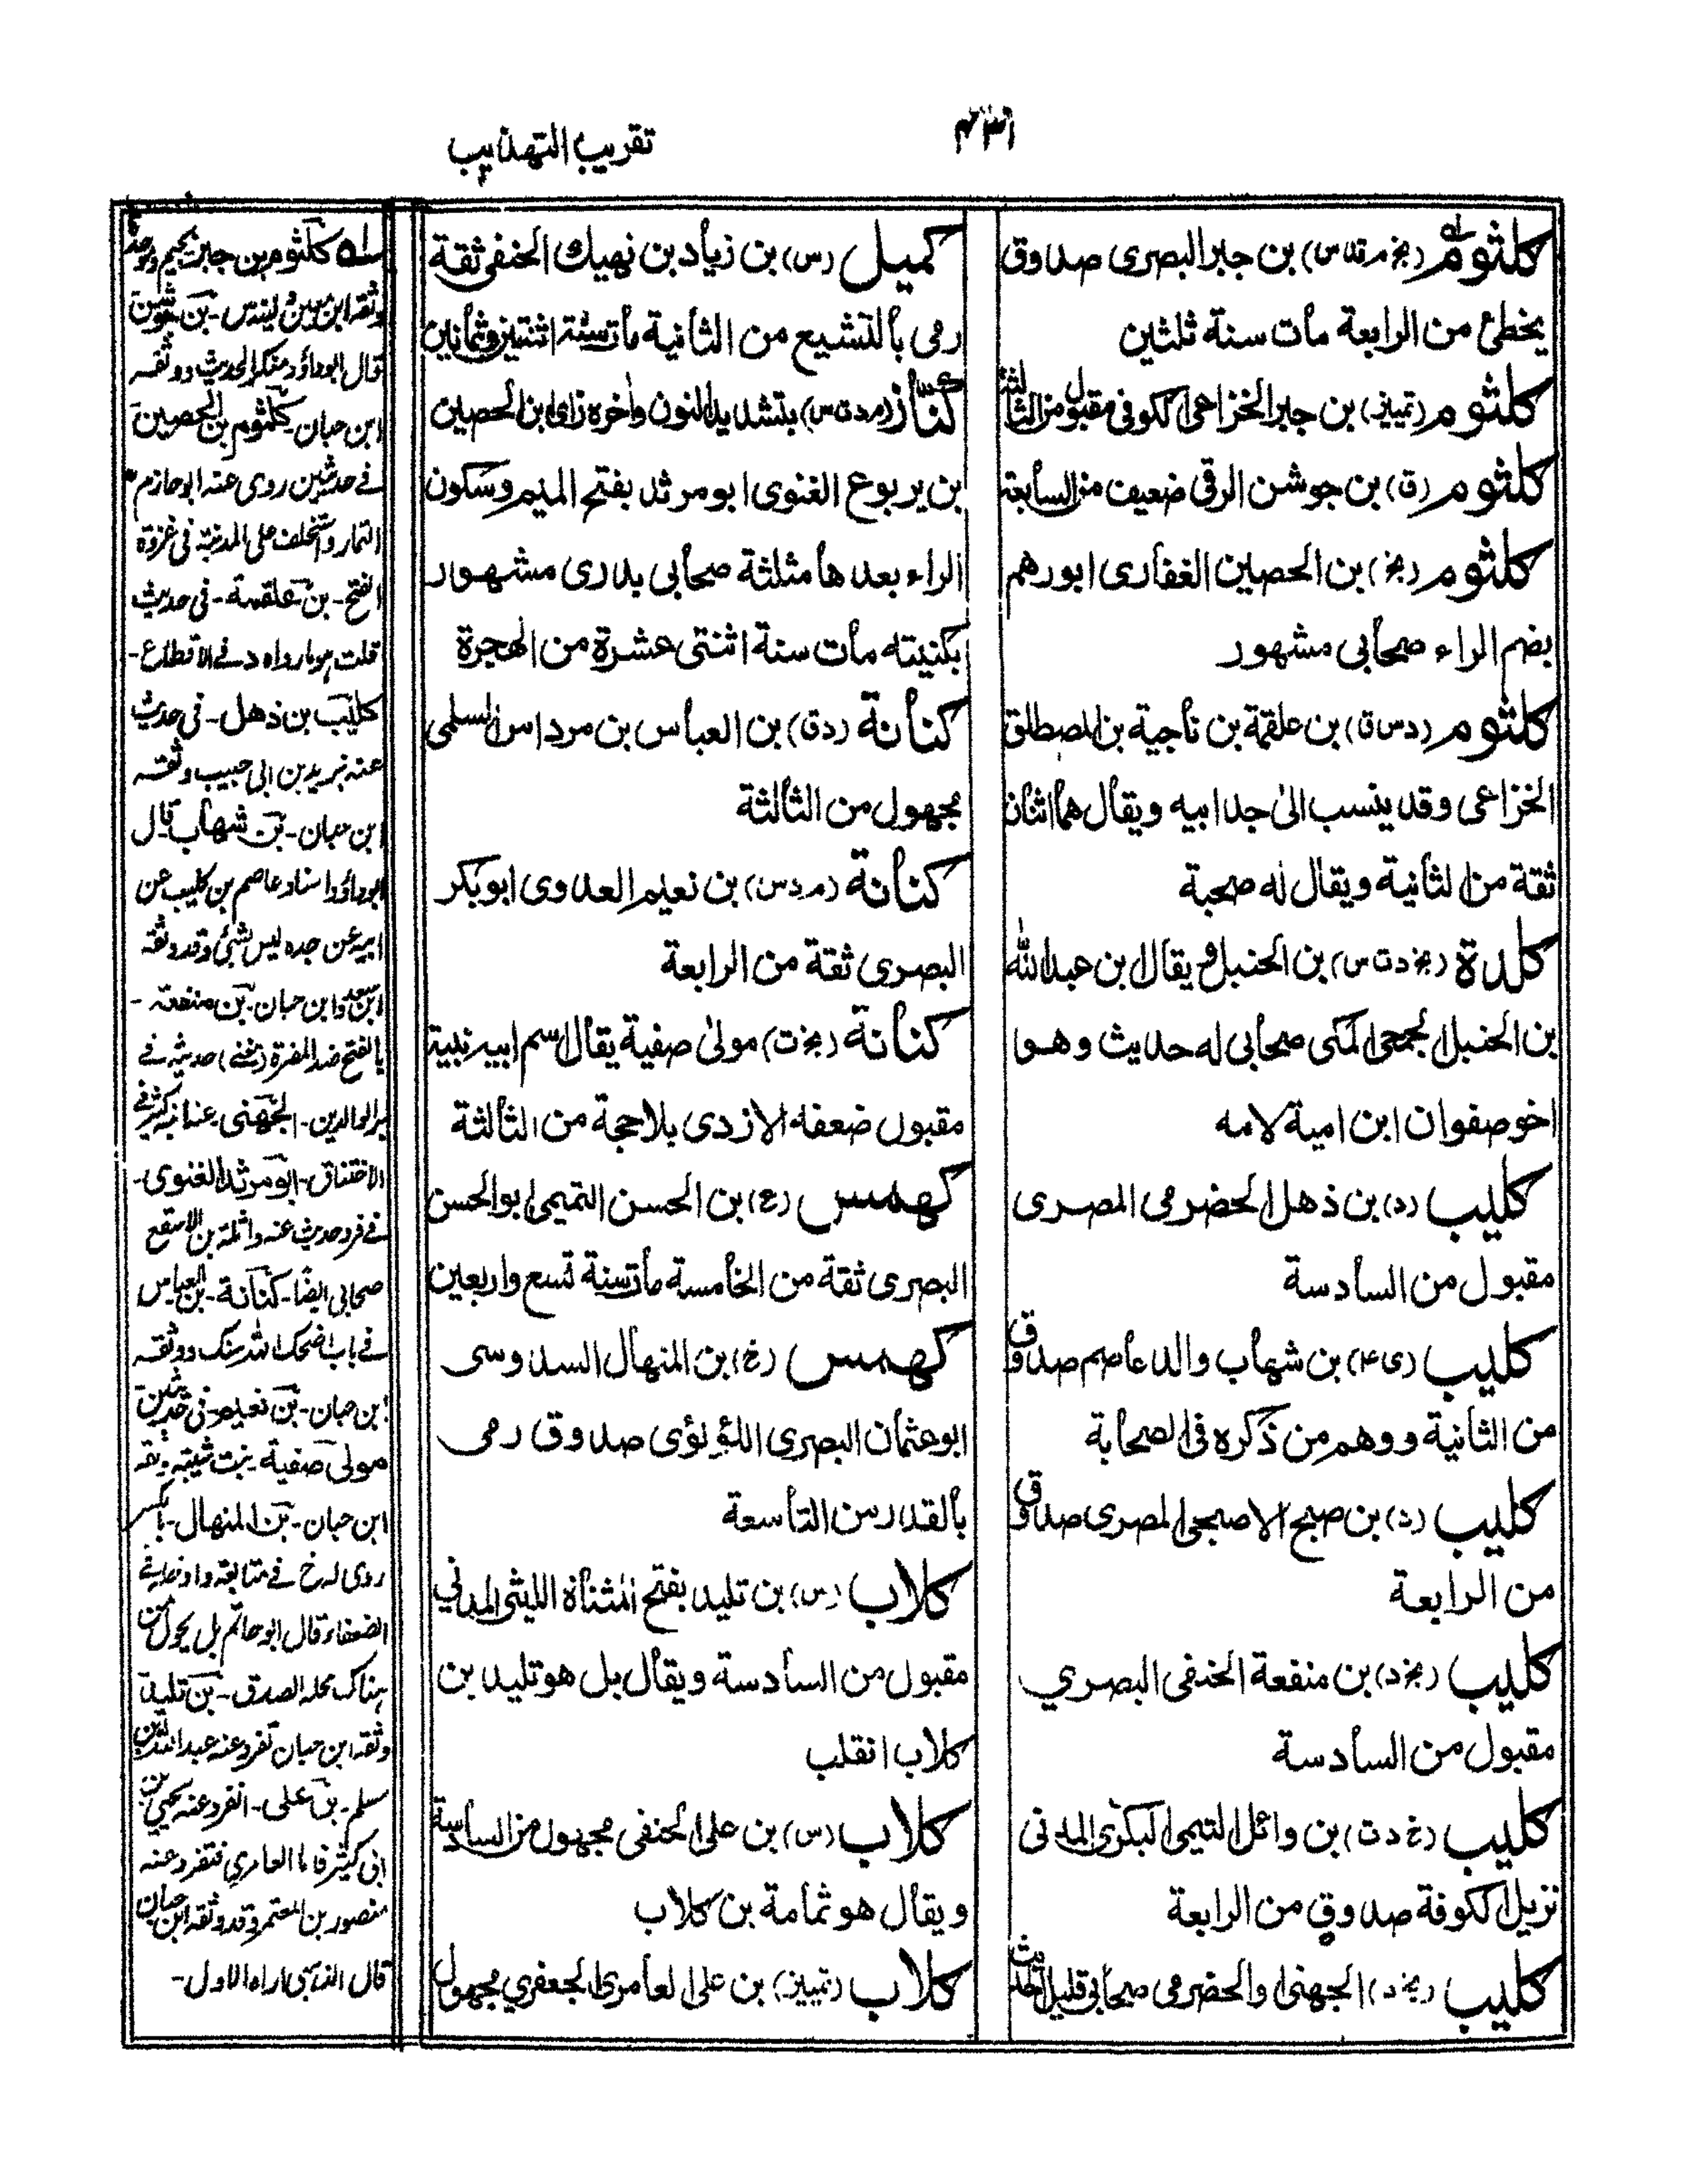 تقريب التهذيب
كلثوم (بخ م قد س) بن جبر البصرى صدوق
يخطئ من الرابعة مات سنة ثلثين
كلثوم (تمييز) بن جبر الخزاعى الكوفى مقبول من الثالثة
كلثوم (ق) بن جوشن الرقى ضعيف من السابعة
كلثوم (بخ) بن الحصين الغفارى ابورهم
بضم الراء صحابى مشهور
كلثوم (د س ق) بن علقمة بن ناجية بن المصطلق
الخزاعى وقد ينسب الى جد ابيه ويقال هما اثنان
ثقة من الثانية ويقال له صحبة
كلدة (بخ د ت س) بن الحنبل ويقال بن عبد الله
بن الحنبل الجمحى المكى صحابى له حديث وهو
اخو صفوان ابن امية لامه
كليب (د) بن ذهل الحضرمى المصرى
مقبول من السادسة
كليب (ى ۴) بن شهاب والد عاصم صدوق
من الثانية ووهم من ذكره فى الصحابة
كليب (د) بن صبح الاصبحى المصرى صدوق
من الرابعة
كليب (بخ د) بن منفعة الحنفى البصري
مقبول من السادسة
كليب (خ د ت) بن وائل التيمى البكرى المدنى
نزيل الكوفة صدوق من الرابعة
كليب (بخ د) الجهنى والحضرمى صحابى قليل الحديث
كميل (س) بن زياد بن نهيك الخنفى ثقة
رمى بالتشيع من الثانية مات سنة اثنتين وثمانين
كناز (م د ت س) بتشديد النون واخره زاى ابن الحصين
بن يربوع الغنوى ابو مرثد بفتح الميم وسكون
الراء بعدها مثلثة صحابى بدرى مشهور
بكنيته مات سنة اثنتى عشرة من الهجرة
كنانة (د ق) بن العباس بن مرداس السلمى
مجهول من الثالثة
كنانة (م د س) بن نعيم العدوى ابوبكر
البصرى ثقة من الرابعة
كنانة (بخ ت) مولى صفية يقال اسم ابيه نبيه
مقبول ضعفه الازدى بلا حجة من الثالثة
كهمس (ع) بن الحسن التميمى ابو الحسن
البصرى ثقة من الخامسة مات سنة تسع واربعين
كهمس (خ) بن المنهال السدوسى
ابو عثمان البصرى اللؤلؤى صدوق رمى
بالقدر من التاسعة
كلاب (س) بن تليد بفتح المثناة الليثى المدني
مقبول من السادسة ويقال بل هو تليد بن
كلاب انقلب
كلاب (س) بن على الحنفى مجهول من السادسة
ويقال هو ثمامة بن كلاب
كلاب (تمييز) بن على العامرى الجعفري مجهول
له كلثوم بن جابر بجيم
وثقه ابن معين
قال ابوداؤد منكر الحديث ووثقه
ابن حبان - كلثوم بن الحصين
فے حديثين روى عنه ابو حازم
التمار واستخلف على المدينة فى غزوة
الفتح - بن علقمة - فى حديث
قلت هو ما رواه د فے الاقطاع -
كليب بن ذهل - فى حديث
عنه يزيد بن ابى حبيب وثقه
ابن حبان - بن شهاب قال
ابوداؤد اسناد عاصم بن كليب عن
ابيه عن جده ليس بشئ وقد وثقه
ابن سعد وابن حبان - بن منفعة -
بالفتح ضد المضرة (مغنے) حديثه فے
بر الوالدين - الجهنى - عنه
الاختناق - ابو مرثد الغنوى -
فے فرد حديث عنه واثلة بن الاسقع
صحابى ايضا - كنانة - بن العباس
فے باب اضحك الله سنك ووثقه
ابن حبان - بن نعيم - فى حديثين
مولى صفية - بنت شيبة وثقه
ابن حبان - بن المنهال - بكسر
روى له خ فے متابعة وادخله فے
الضعفاء قال ابو حاتم بل يحول من
هناك محله الصدق - بن تليد
وثقه ابن حبان تفرد عنه عبد الله بن
مسلم - بن على - انفرد عنه يحيى بن
ابى كثير فاما العامري فتفرد عنه
منصور بن المعتمر وقد وثقه ابن حبان
قال الذهبى اراه الاول -